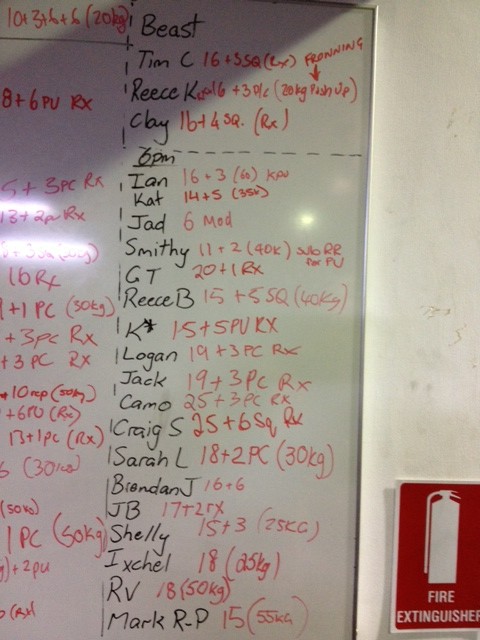 10+3+6+6 (20kg)
8+6 PU Rx
5+3PC Rx
13+2pu Rx
16 Rx
+1 PC (30kg)
+3PC Rx
+3 PC Rx
+10rep (50kg)
+6PU (Rx)
13+1PC (Rx)
(50KG)
1 PC (50kg)
+2pu
(Rx)
Beast
Tim C 16+5SQ (Rx) FRONNING
Reece K 16 +3P/C (20kg Push Up)
Clay 16+4 SQ. (Rx)
6pm
Ian 16+3 (60) KPU
Kat 14+5 (35K)
Jad 6 Mod
Smithy 11+2 (40K) sub RR for PU
GT 20+1 Rx
Reece B 15+5SQ (40Kg)
K* 15+5PU RX
Logan 19+3PC Rx
Jack 19+3PC Rx
Camo 25+3PC Rx
Craig S 25+6Sq Rx
Sarah L 18+2PC (30kg)
Brendan J 16+6
JB 17+2rx
Shelly 15+3 (25KG)
Ixchel 18 (25kg)
RV 18 (50kg)
Mark R-P 15 (55KG)
FIRE
EXTINGUISHER